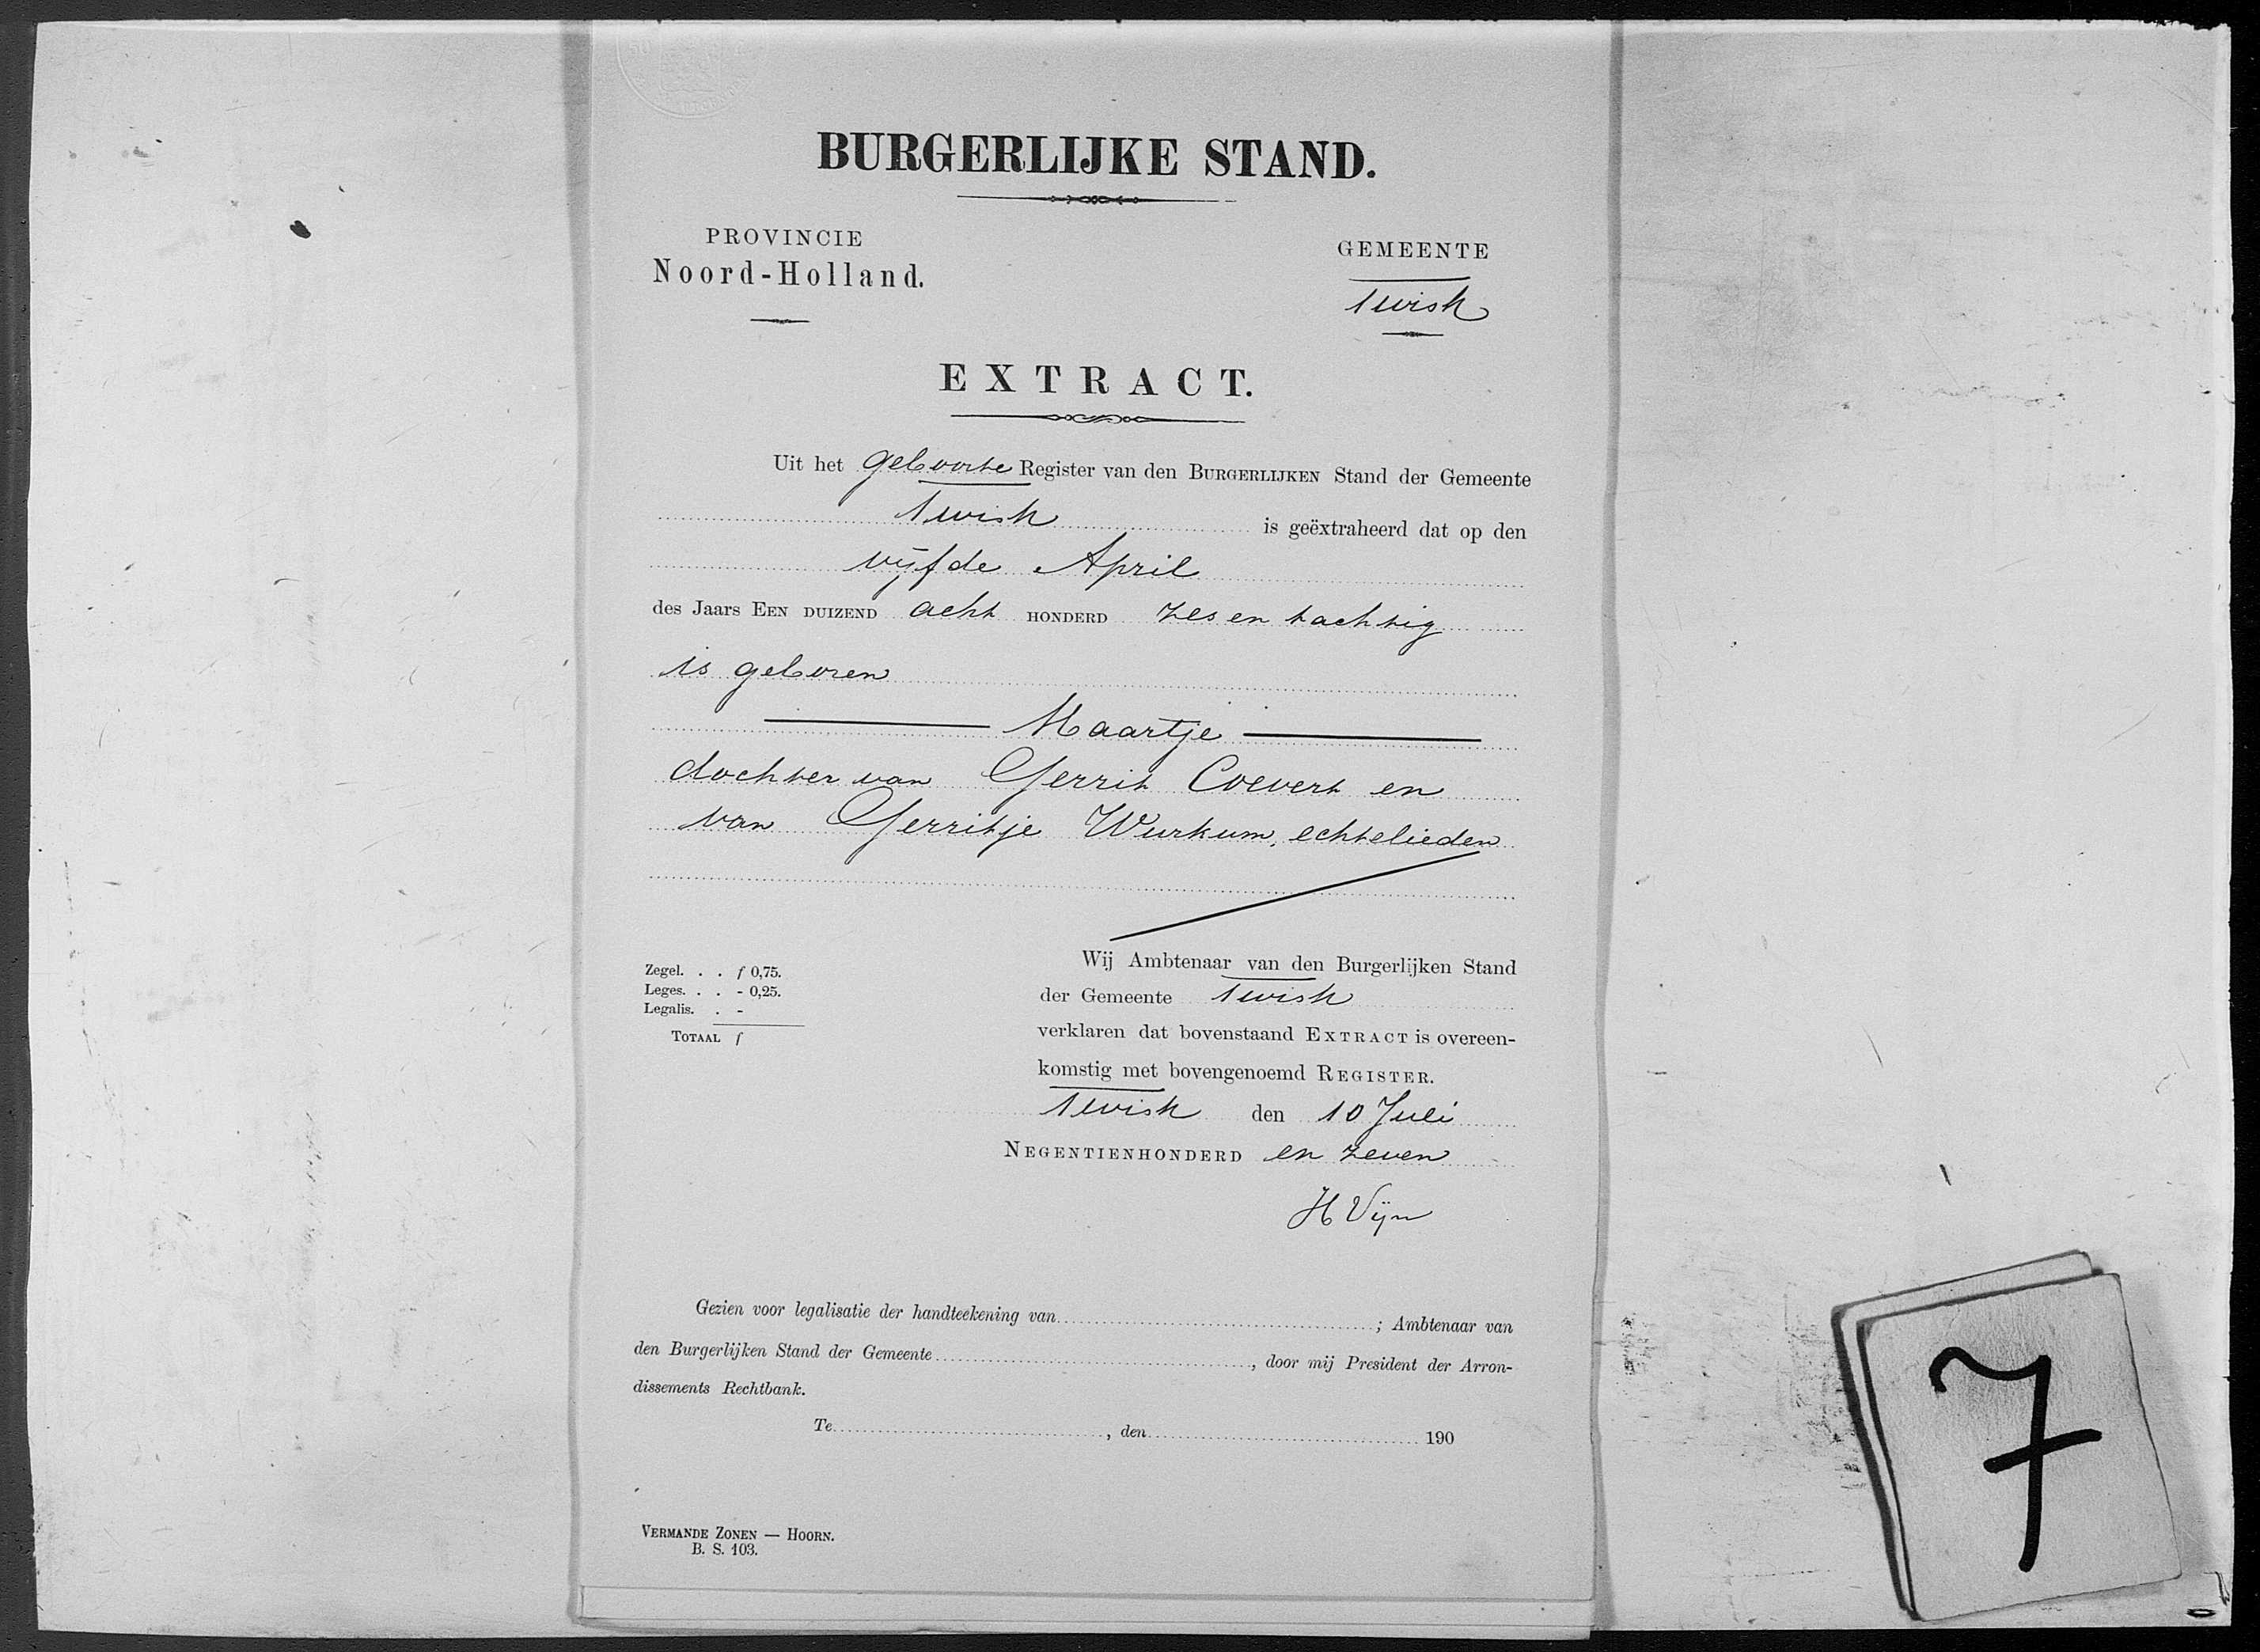 BURGERLIJKE STAND.
PROVINCIE
Noord-Holland.
GEMEENTE
Twisk
EXTRACT.
Uit het geboorte Register van den BURGERLIJKEN Stand der Gemeente
Twisk is geëxtraheerd dat op den
vijfde April
des Jaars EEN DUIZEND acht HONDERD zes en tachtig
is geboren
Maartje
dochter van Gerrit Coevert en
van Gerritje Wurkum, echtelieden
Zegel. . . f 0,75.
Leges. . . - 0,25.
Legalis. . -
TOTAAL f
Wij Ambtenaar van den Burgerlijken Stand
der Gemeente Twisk
verklaren dat bovenstaand EXTRACT is overeen-
komstig met bovengenoemd REGISTER.
Twisk den 10 Juli
NEGENTIENHONDERD en zeven
H Vijn
Gezien voor legalisatie der handteekening van ; Ambtenaar van
den Burgerlijken Stand der Gemeente , door mij President der Arron-
dissements Rechtbank.
Te , den 190
VERMANDE ZONEN — HOORN.
B. S. 103.
7